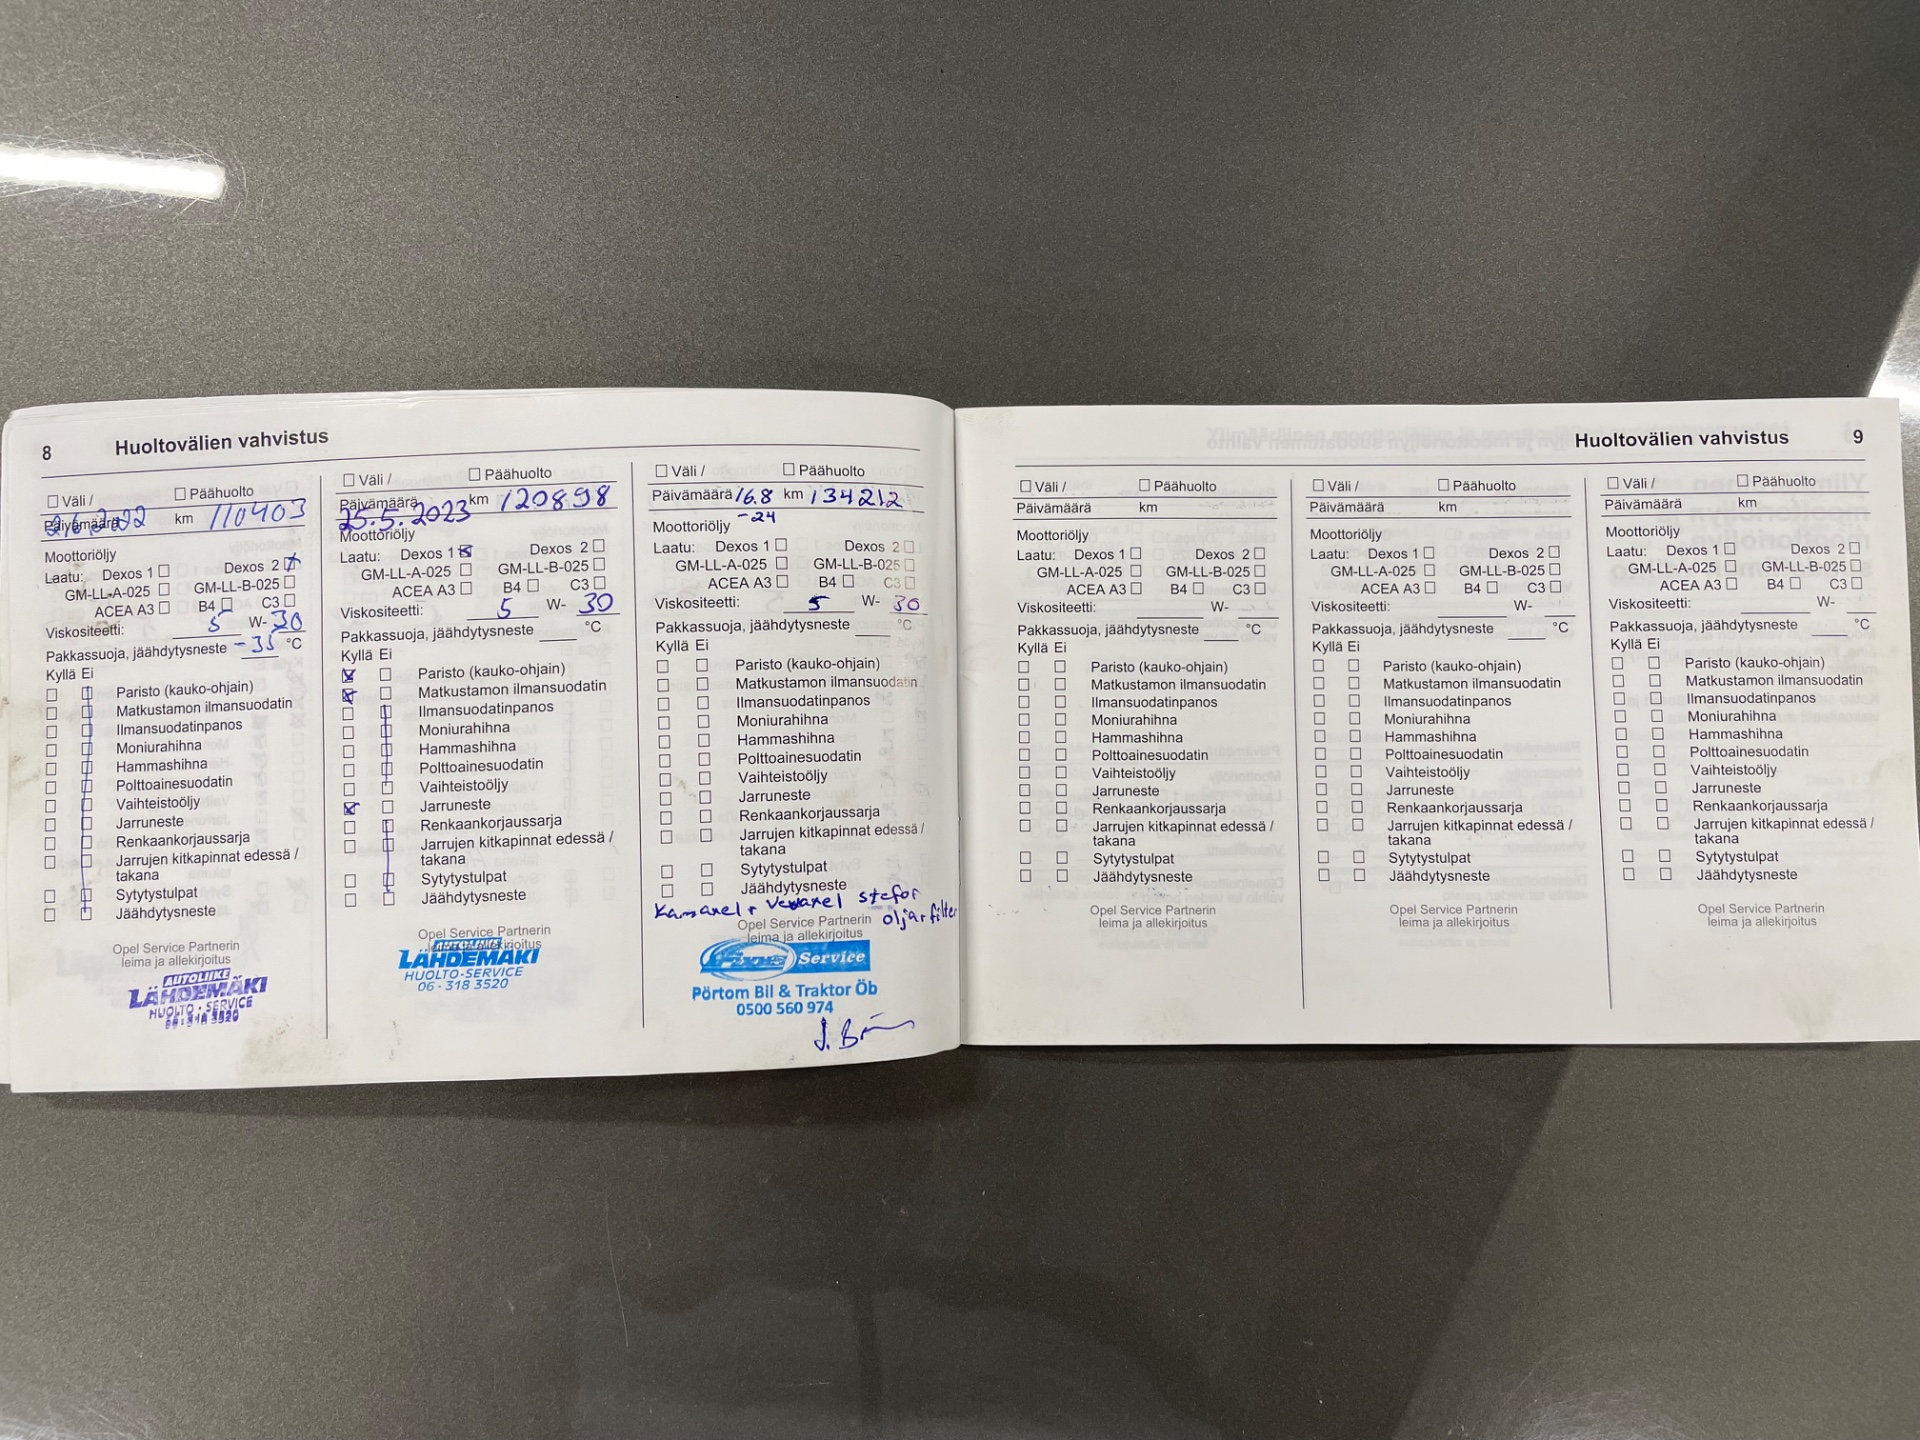 8 Huoltovälien vahvistus
Väli / Päähuolto
Päivämäärä km 110403
Moottoriöljy
Laatu: Dexos 1 Dexos 2
GM-LL-A-025 GM-LL-B-025
ACEA A3 B4 C3
Viskositeetti: 5 W- 30
Pakkassuoja, jäähdytysneste -35 °C
Kyllä Ei
Paristo (kauko-ohjain)
Matkustamon ilmansuodatin
Ilmansuodatinpanos
Moniurahihna
Hammashihna
Polttoainesuodatin
Vaihteistoöljy
Jarruneste
Renkaankorjaussarja
Jarrujen kitkapinnat edessä /
takana
Sytytystulpat
Jäähdytysneste
Opel Service Partnerin
leima ja allekirjoitus
AUTOLIIKE
LÄHDEMÄKI
HUOLTO-SERVICE
06-318 3520
Väli / Päähuolto
Päivämäärä km 120898
25.5.2023
Moottoriöljy
Laatu: Dexos 1 Dexos 2
GM-LL-A-025 GM-LL-B-025
ACEA A3 B4 C3
Viskositeetti: 5 W- 30
Pakkassuoja, jäähdytysneste °C
Kyllä Ei
Paristo (kauko-ohjain)
Matkustamon ilmansuodatin
Ilmansuodatinpanos
Moniurahihna
Hammashihna
Polttoainesuodatin
Vaihteistoöljy
Jarruneste
Renkaankorjaussarja
Jarrujen kitkapinnat edessä /
takana
Sytytystulpat
Jäähdytysneste
Opel Service Partnerin
leima ja allekirjoitus
AUTOLIIKE
LÄHDEMÄKI
HUOLTO-SERVICE
06-318 3520
Väli / Päähuolto
Päivämäärä 16.8 km 134212
-24
Moottoriöljy
Laatu: Dexos 1 Dexos 2
GM-LL-A-025 GM-LL-B-025
ACEA A3 B4 C3
Viskositeetti: 5 W- 30
Pakkassuoja, jäähdytysneste °C
Kyllä Ei
Paristo (kauko-ohjain)
Matkustamon ilmansuodatin
Ilmansuodatinpanos
Moniurahihna
Hammashihna
Polttoainesuodatin
Vaihteistoöljy
Jarruneste
Renkaankorjaussarja
Jarrujen kitkapinnat edessä /
takana
Sytytystulpat
Jäähdytysneste
Opel Service Partnerin
leima ja allekirjoitus
Fixus Service
Pörtom Bil & Traktor Öb
0500 560 974
Huoltovälien vahvistus 9
Väli / Päähuolto
Päivämäärä km
Moottoriöljy
Laatu: Dexos 1 Dexos 2
GM-LL-A-025 GM-LL-B-025
ACEA A3 B4 C3
Viskositeetti: W-
Pakkassuoja, jäähdytysneste °C
Kyllä Ei
Paristo (kauko-ohjain)
Matkustamon ilmansuodatin
Ilmansuodatinpanos
Moniurahihna
Hammashihna
Polttoainesuodatin
Vaihteistoöljy
Jarruneste
Renkaankorjaussarja
Jarrujen kitkapinnat edessä /
takana
Sytytystulpat
Jäähdytysneste
Opel Service Partnerin
leima ja allekirjoitus
Väli / Päähuolto
Päivämäärä km
Moottoriöljy
Laatu: Dexos 1 Dexos 2
GM-LL-A-025 GM-LL-B-025
ACEA A3 B4 C3
Viskositeetti: W-
Pakkassuoja, jäähdytysneste °C
Kyllä Ei
Paristo (kauko-ohjain)
Matkustamon ilmansuodatin
Ilmansuodatinpanos
Moniurahihna
Hammashihna
Polttoainesuodatin
Vaihteistoöljy
Jarruneste
Renkaankorjaussarja
Jarrujen kitkapinnat edessä /
takana
Sytytystulpat
Jäähdytysneste
Opel Service Partnerin
leima ja allekirjoitus
Väli / Päähuolto
Päivämäärä km
Moottoriöljy
Laatu: Dexos 1 Dexos 2
GM-LL-A-025 GM-LL-B-025
ACEA A3 B4 C3
Viskositeetti: W-
Pakkassuoja, jäähdytysneste °C
Kyllä Ei
Paristo (kauko-ohjain)
Matkustamon ilmansuodatin
Ilmansuodatinpanos
Moniurahihna
Hammashihna
Polttoainesuodatin
Vaihteistoöljy
Jarruneste
Renkaankorjaussarja
Jarrujen kitkapinnat edessä /
takana
Sytytystulpat
Jäähdytysneste
Opel Service Partnerin
leima ja allekirjoitus